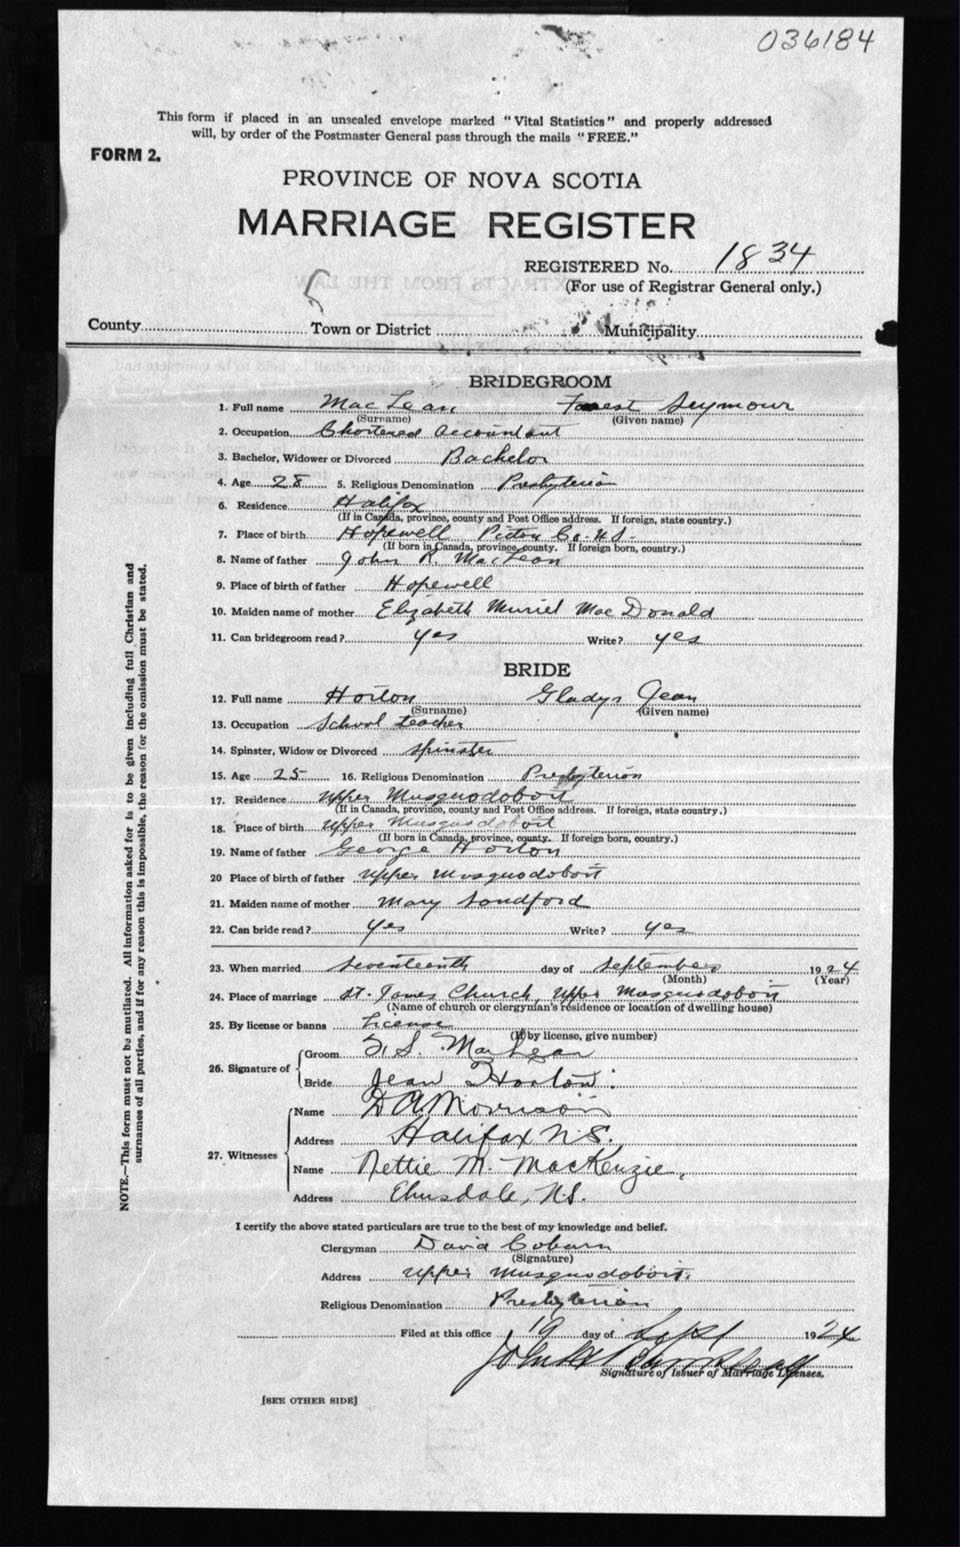 036184
This form if placed in an unsealed envelope marked "Vital Statistics" and properly addressed
will, by order of the Postmaster General pass through the mails "FREE."
FORM 2.
PROVINCE OF NOVA SCOTIA
MARRIAGE REGISTER
REGISTERED No. 1834
(For use of Registrar General only.)
County Town or District Municipality
BRIDEGROOM
1. Full name MacLean Forest Seymour
(Surname) (Given name)
2. Occupation Chartered Accountant
3. Bachelor, Widower or Divorced Bachelor
4. Age 28 5. Religious Denomination Presbyterian
6. Residence Halifax
(If in Canada, province, county and Post Office address. If foreign, state country.)
7. Place of birth Hopewell Pictou Co. N.S.
(If born in Canada, province, county. If foreign born, country.)
8. Name of father John R. MacLean
9. Place of birth of father Hopewell
10. Maiden name of mother Elizabeth Muriel MacDonald
11. Can bridegroom read? yes Write? yes
BRIDE
12. Full name Horton Gladys Jean
(Surname) (Given name)
13. Occupation School teacher
14. Spinster, Widow or Divorced Spinster
15. Age 25 16. Religious Denomination Presbyterian
17. Residence Upper Musquodoboit
(If in Canada, province, county and Post Office address. If foreign, state country.)
18. Place of birth Upper Musquodoboit
(If born in Canada, province, county. If foreign born, country.)
19. Name of father George Horton
20 Place of birth of father Upper Musquodoboit
21. Maiden name of mother Mary Sandford
22. Can bride read? yes Write? yes
23. When married Seventeenth day of September 1924
(Month) (Year)
24. Place of marriage St. James Church, Upper Musquodoboit
(Name of church or clergyman's residence or location of dwelling house)
25. By license or banns License
(If by license, give number)
26. Signature of
Groom F. S. MacLean
Bride Jean Horton.
27. Witnesses
Name D A Morrison
Address Halifax N.S.
Name Nettie M. MacKenzie,
Address Elmsdale, N.S.
I certify the above stated particulars are true to the best of my knowledge and belief.
Clergyman David Coburn
(Signature)
Address Upper Musquodoboit.
Religious Denomination Presbyterian
Filed at this office 19 day of Sept 1924
Signature of Issuer of Marriage Licenses.
[SEE OTHER SIDE]
NOTE.—This form must not be mutilated. All information asked for is to be given including full Christian and
surnames of all parties, and if for any reason this is impossible, the reason for the omission must be stated.